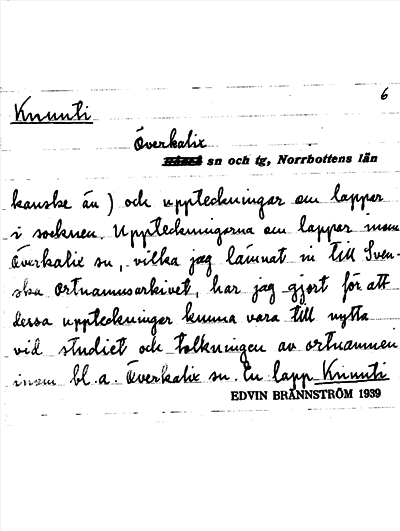 6
Knuuti
Överkalix
sn och tg, Norrbottens län
kanske än) och uppteckningar om lappar
i socknen. Uppteckningarna om lappar inom
Överkalix sn, vilka jag lämnat in till Sven-
ska Ortnamnsarkivet, har jag gjort för att
dessa uppteckningar kunna vara till nytta
vid studiet och tolkningen av ortnamnen
inom bl.a. Överkalix sn. En lapp Knuuti
EDVIN BRÄNNSTRÖM 1939